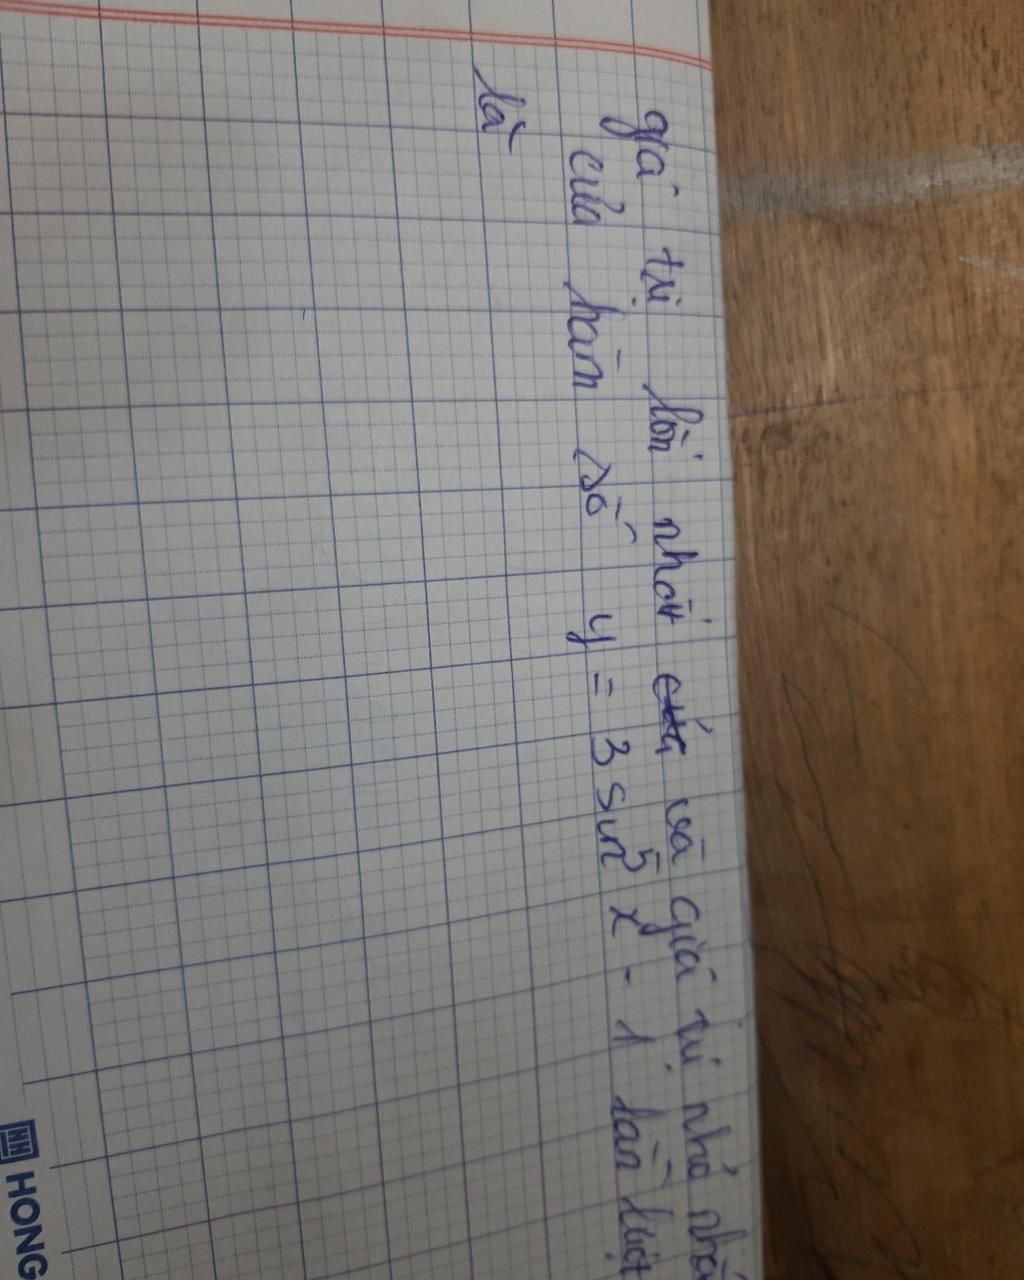 giá trị lớn nhất và giá trị nhỏ nhấ
của hàm số y = 3 sin⁵ x - 1 lần lượt
là
HONG